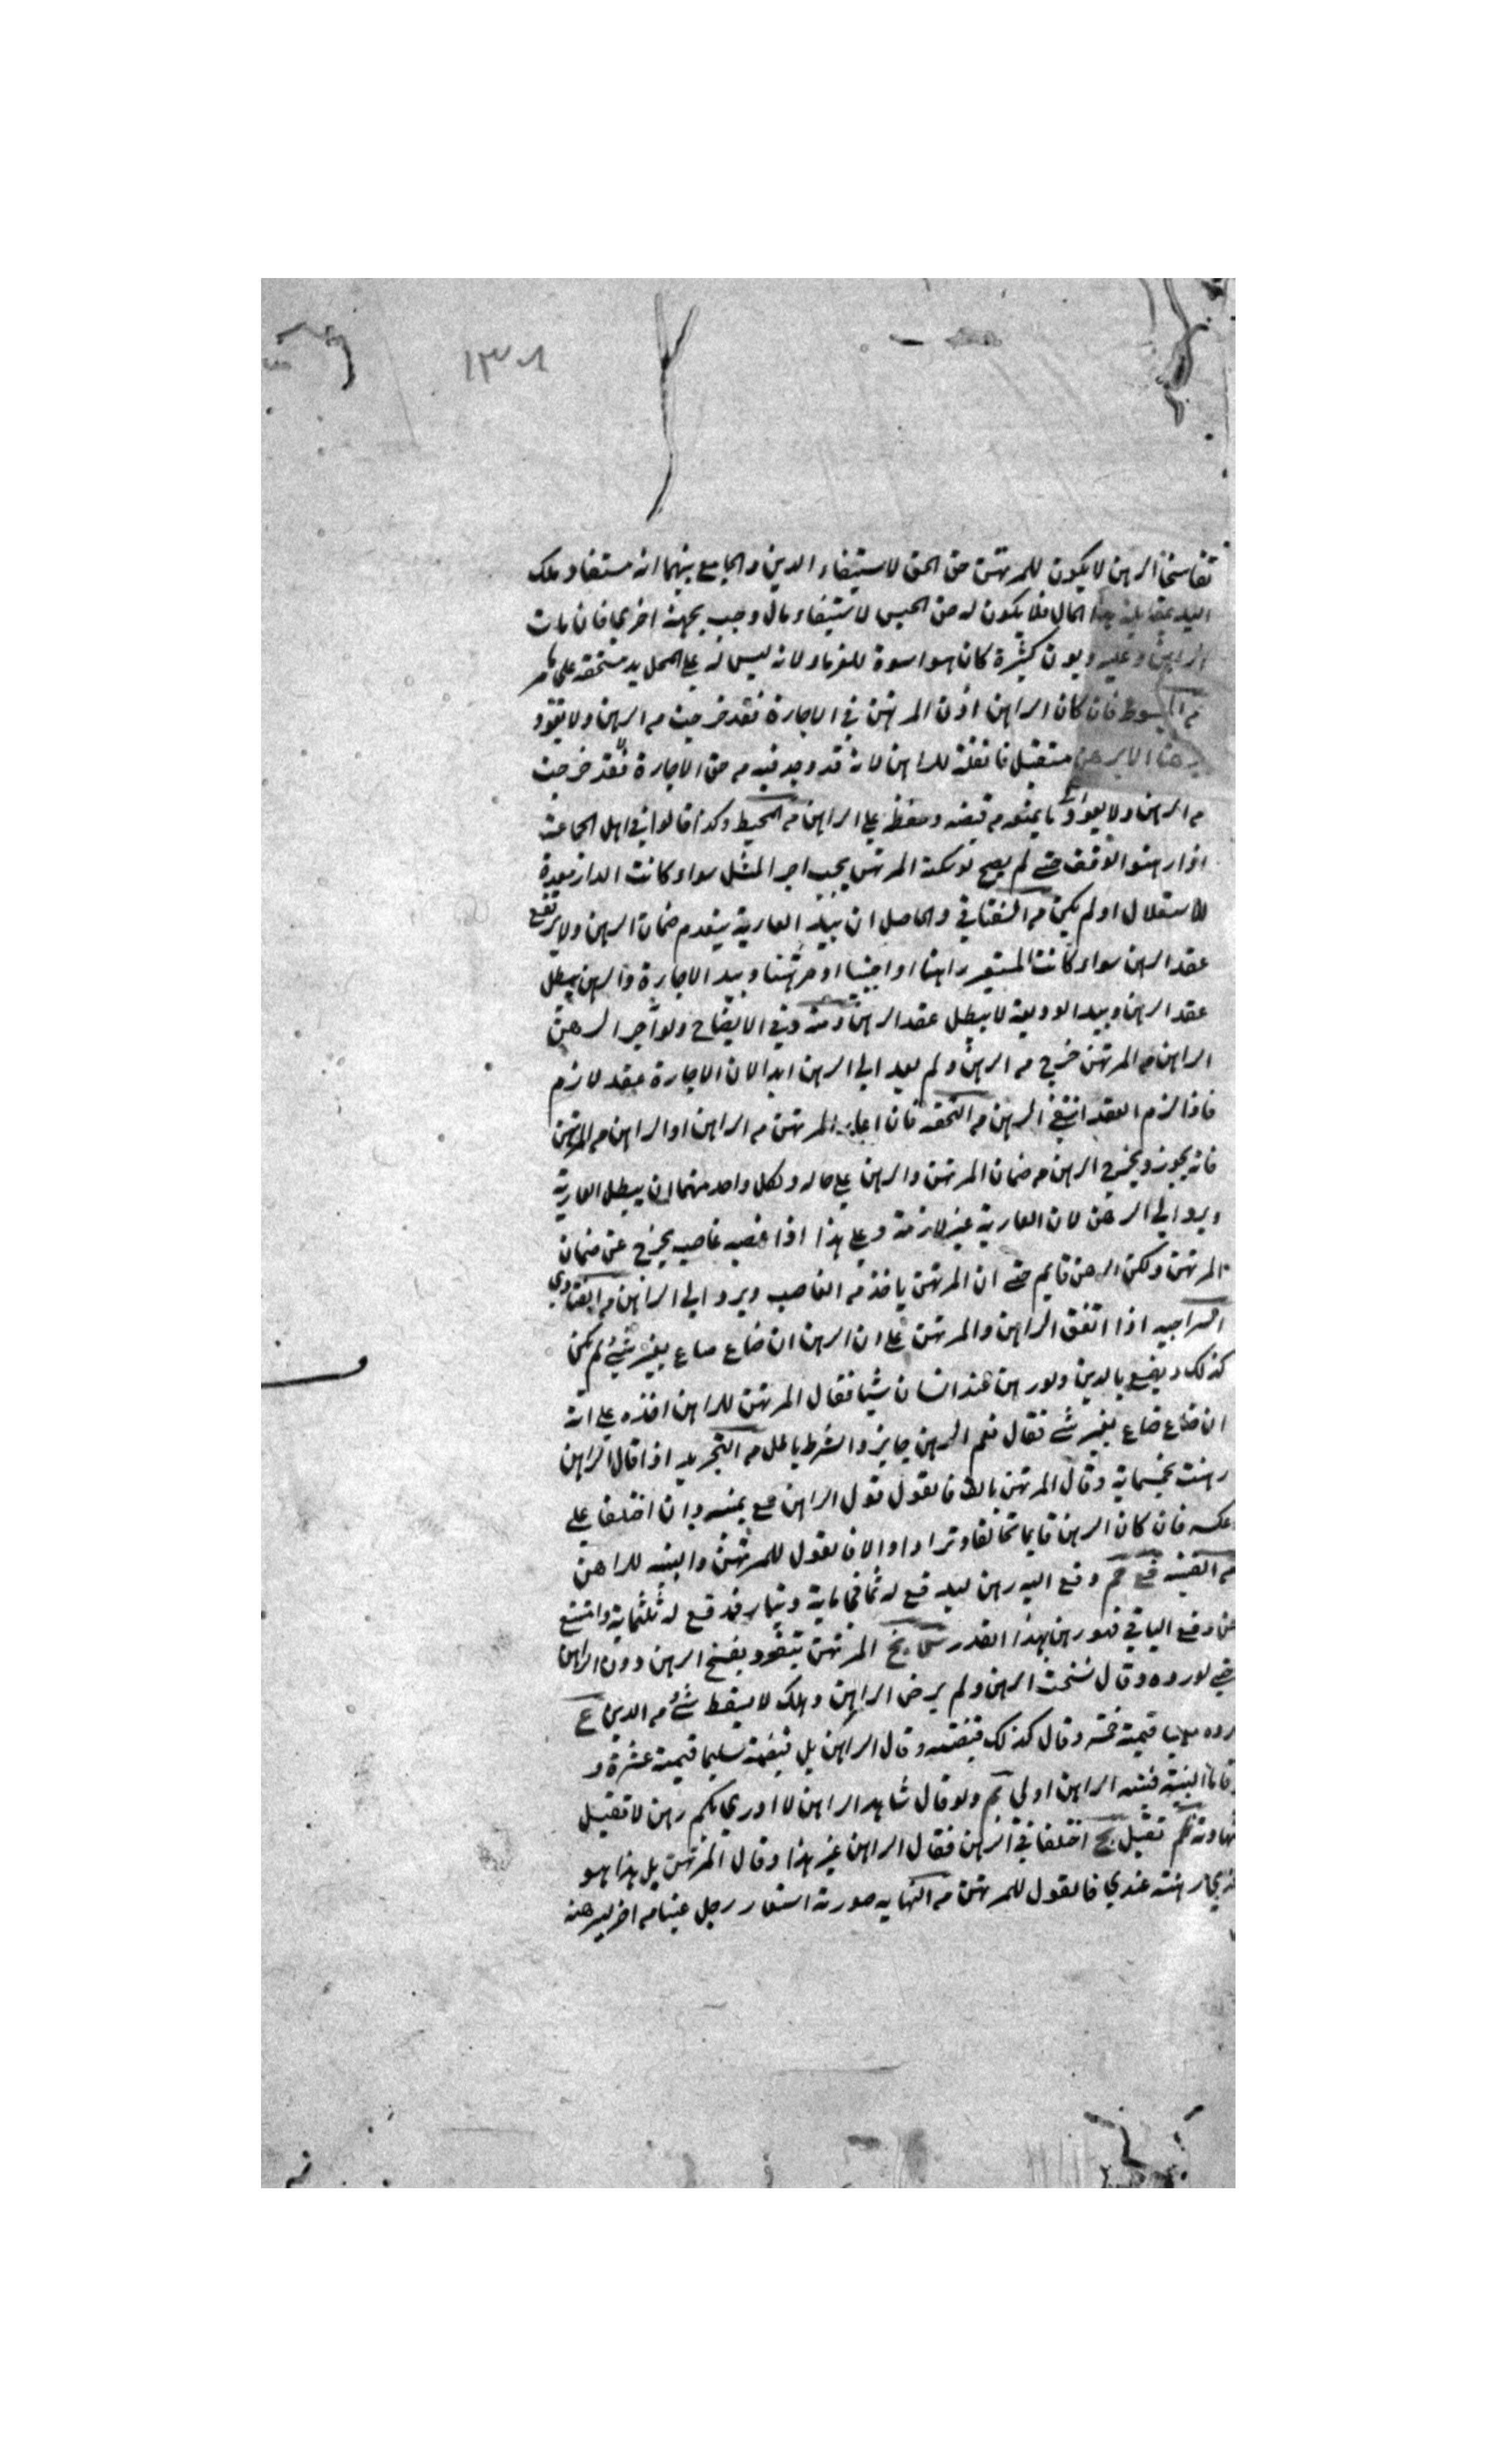 ١٣٨
تفاسخا الرهن لا يكون للمرتهن حق الحق لاستيفاء الدين والجامع بينهما انه مستفاد ملك
اليد بمقابلة هذا المال فلا يكون له حق الحبس لاستيفاء مال وجب بجهة اخري فان مات
الراهن وعليه ديون كثيرة كان هو اسوة للغرماء لانه ليس له علي المحل يد مستحقه علي ما مر
من المبسوط فان كان الراهن اذن المرتهن في الاجارة فقد خرجت من الرهن ولا يعود
رهنا الا برهن مستقبل فانعقد للراهن لانه قد وجد فيه من حق الاجارة فقد خرجت
من الرهن ولا يعود ما يمنعه من قبضه وحفظه علي الراهن من المحيط وكذا قالوا في اهل الجماعة
اذا رهنوا الوقف حتي لم يصح لو سكنه المرتهن يجب اجر المثل سواء كانت الدار معدة
للاستغلال او لم يكن من السغناقي والحاصل ان بيد العارية ينعدم ضمان الرهن ولا يرتفع
عقد الرهن سواء كانت المستعير راهنا او اجنبيا او مرتهنا وبيد الاجارة والرهن يبطل
عقد الرهن وبيد الوديعة لا يبطل عقد الرهن ومنه وفي الايضاح ولو آجر الرهن
الراهن من المرتهن خرج من الرهن ولم يعد الي الرهن ابدا لان الاجارة عقد لازم
فاذا لزم العقد انتفي الرهن من التحفه فان اعار المرتهن من الراهن او الراهن من المرتهن
فانه يجوز ويخرج الرهن من ضمان المرتهن والرهن علي حاله ولكل واحد منهما ان يبطل العارية
ويرد الي الرهن لان العارية غير لازمة وعلي هذا اذا غصبه غاصب يخرج عن ضمان
المرتهن ولكن الرهن قايم حتي ان المرتهن ياخذ من الغاصب ويرد الي الراهن من الفتاوي
السراجيه اذا اتفق الراهن والمرتهن علي ان الرهن ان ضاع ضاع بغير شيء لم يكن
كذلك ويضيع بالدين ولو رهن عند انسان شيا فقال المرتهن للراهن اخذه علي انه
ان ضاع ضاع بغير شيء فقال نعم الرهن جايز والشرط باطل من التجريد اذا قال الراهن
رهنت بخمسماية وقال المرتهن بالف فالقول قول الراهن مع يمينه وان اختلفا علي
عكسه فان كان الرهن قايما تحالفا وترادا والا فالقول للمرتهن والبينه للراهن
من القنيه قع عم دفع اليه رهن ليدفع له ثمانماية دينار فدفع له ثلثماية وامتنع
عن دفع الباقي فهو رهن بهذا القدر سح بخ المرتهن يتفرد بفسخ الرهن دون الراهن
حتي لو رده وقال فسخت الرهن ولم يرض الراهن وهلك لا يسقط شيء من الدين ع
رده معيبا قيمته خمسة وقال كذلك قبضته وقال الراهن بل قبضته سليما قيمته عشرة و
اقاما البينة فبينه الراهن اولي بم ولو قال شاهد الراهن لا ادري بكم رهن لا تقبل
شهادته كم تقبل بح اختلفا في الرهن فقال الراهن غير هذا وقال المرتهن بل هذا هو
الذي رهنته عندي فالقول للمرتهن من النهايه صورته استعار رجل عينا من اخر ليرهنه